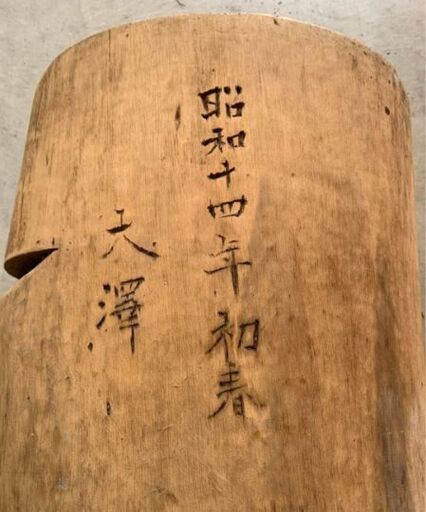 昭和十四年初春
大澤